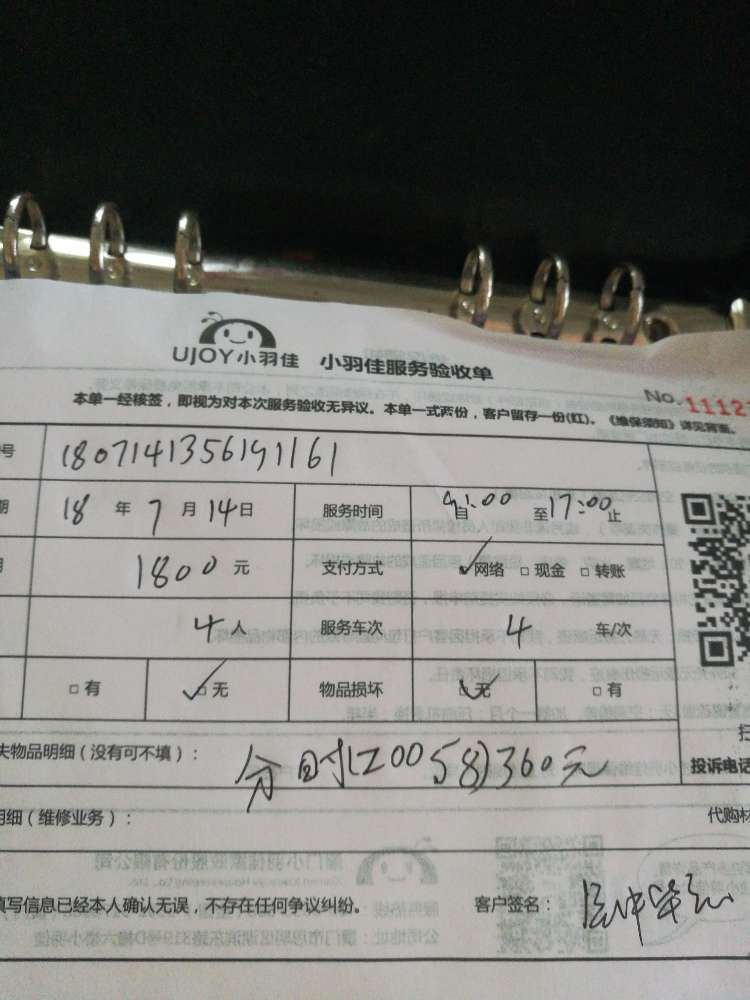 UJOY小羽佳 小羽佳服务验收单
No.1112
本单一经核签，即视为对本次服务验收无异议。本单一式两份，客户留存一份(红)。《维保须知》详见背面。
号 1807141356191161
期 18 年 7 月 14 日 服务时间 自 9:00 至 17:00 止
1800 元 支付方式 ✓网络 □ 现金 □ 转账
4 人 服务车次 4 车/次
□ 有 ✓□ 无 物品损坏 ✓□ 无 □ 有
失物品明细（没有可不填）： 360元
投诉电话
明细（维修业务）： 代购材
填写信息已经本人确认无误，不存在任何争议纠纷。 客户签名：